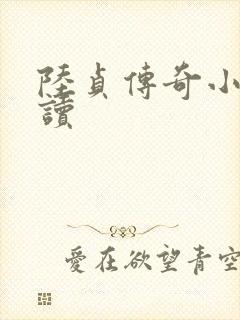 陸貞傳奇小
讀
愛在欲望青空